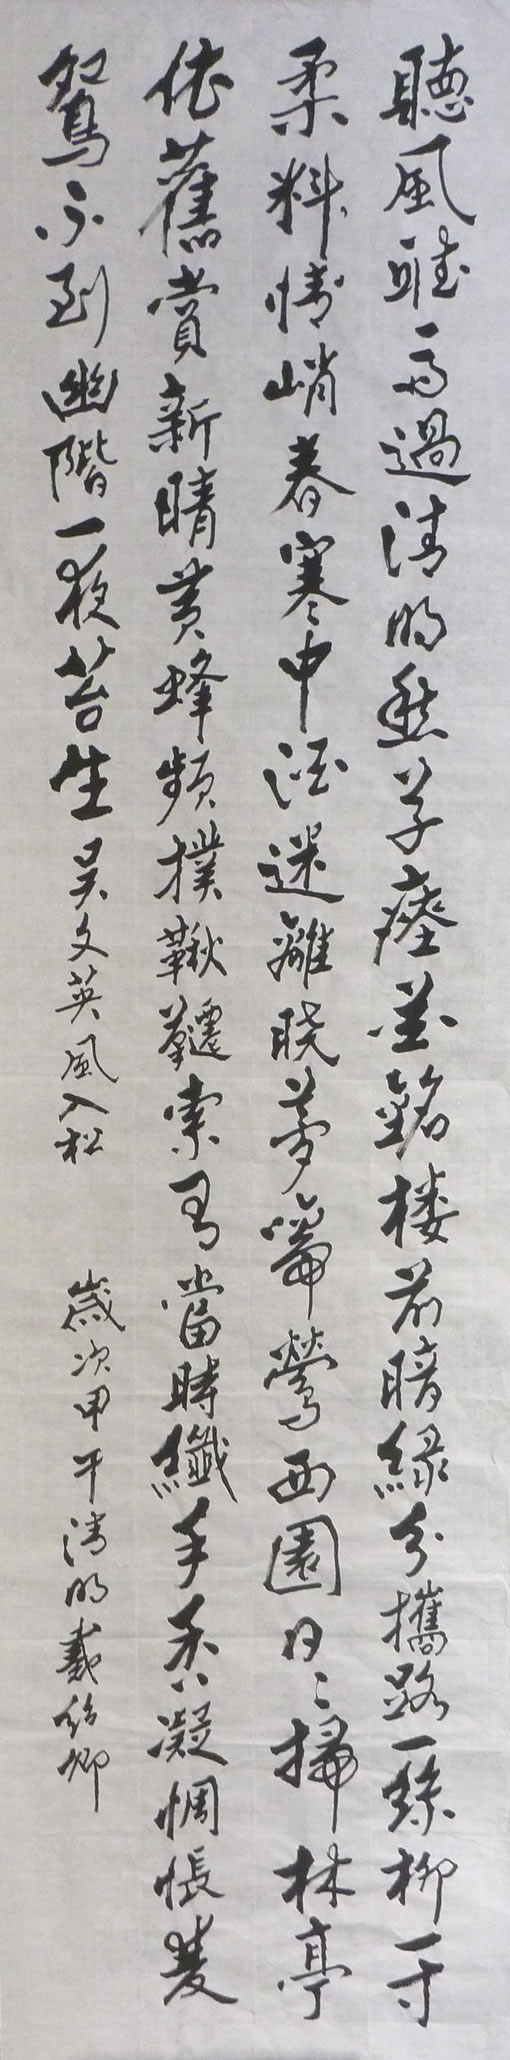 聽風聽雨過清明愁草瘞花銘楼前暗綠分攜路一絲柳一寸
柔料情峭春寒中酒迷離曉夢啼鶯西園日々掃林亭
依舊賞新晴黃蜂頻撲鞦韆索有當時纖手香凝惆悵雙
鴛不到幽階一夜苔生 吳文英風入松 歲次甲午清明戴卿